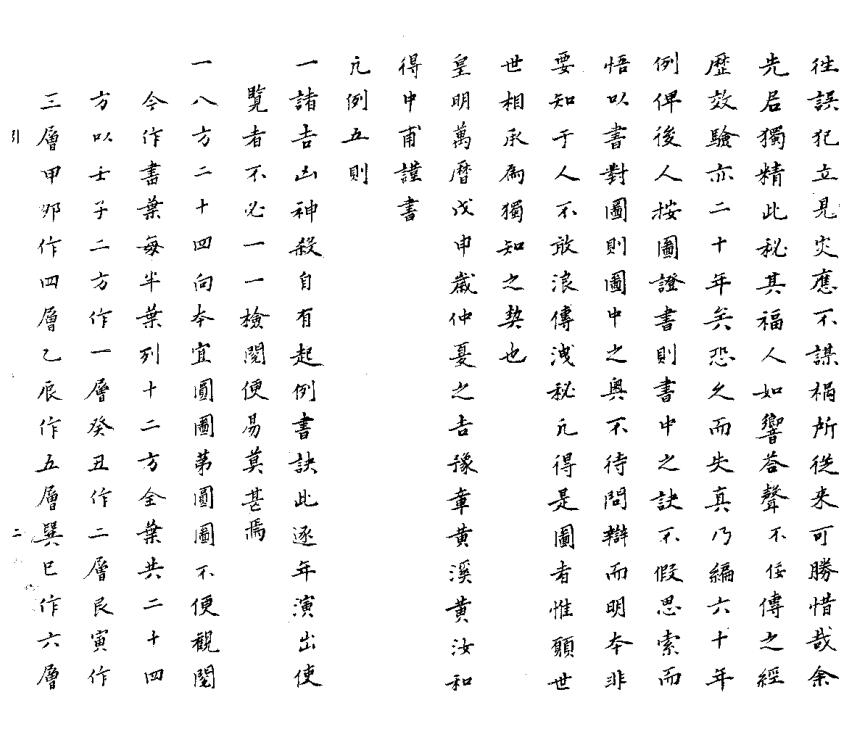 往誤犯立見災應不謀禍所從来可勝惜哉余
先君獨精此秘其福人如響荅聲不佞傳之經
歷效驗亦二十年矣恐久而失真乃編六十年
例俾後人按圖證書則書中之訣不假思索而
悟以書對圖則圖中之奧不待問辯而明本非
要知于人不敢浪傳洩秘凢得是圖者惟願世
世相承爲獨知之契也
皇明萬曆戊申歲仲夏之吉豫章黄溪黄汝和
得中甫謹書
凢例五則
一諸吉凶神殺自有起例書訣此逐年演出使
覽者不必一一檢閱便易莫甚焉
一八方二十四向本宜圓圖第圓圖不便觀閱
今作書葉每半葉列十二方全葉共二十四
方以壬子二方作一層癸丑作二層艮寅作
三層甲夘作四層乙辰作五層巽巳作六層
引
二